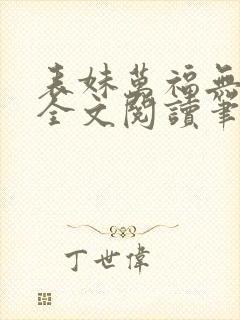 表妹萬福無
全文閱讀筆
丁世偉